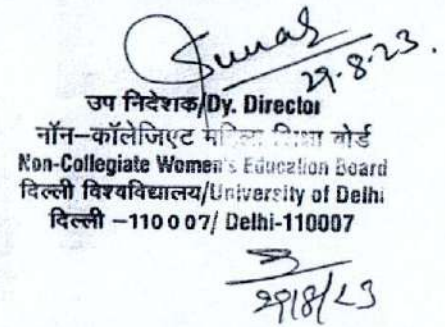 29.8.23.
उप निदेशक/Dy. Director
नॉन-कॉलेजिएट महिला शिक्षा बोर्ड
Non-Collegiate Women's Education Board
दिल्ली विश्वविद्यालय/University of Delhi
दिल्ली -110007/ Delhi-110007
29/8/23